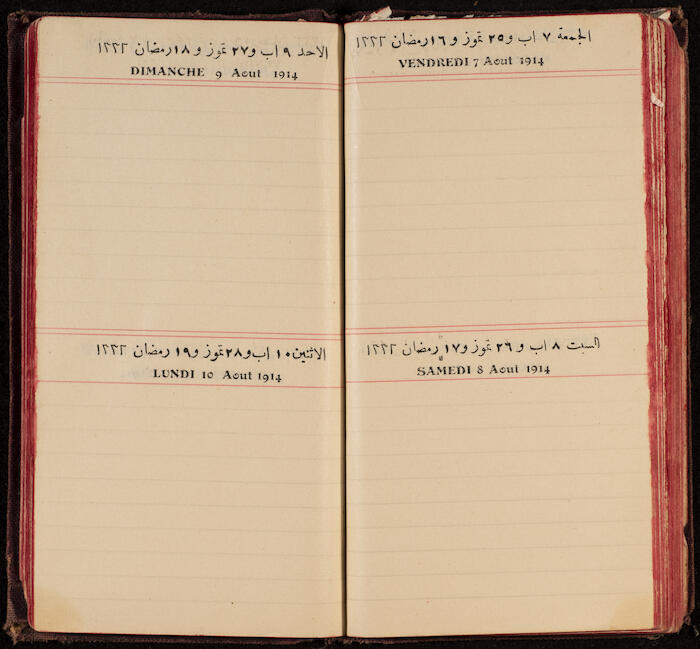 الجمعة ٧ اب و ٢٥ تموز و ١٦ رمضان ١٣٣٢
VENDREDI 7 Aout 1914
السبت ٨ اب و ٢٦ تموز و ١٧ رمضان ١٣٣٢
SAMEDI 8 Aout 1914
الاحد ٩ اب و ٢٧ تموز و ١٨ رمضان ١٣٣٢
DIMANCHE 9 Aout 1914
الاثنين ١٠ اب و ٢٨ تموز و ١٩ رمضان ١٣٣٢
LUNDI 10 Aout 1914